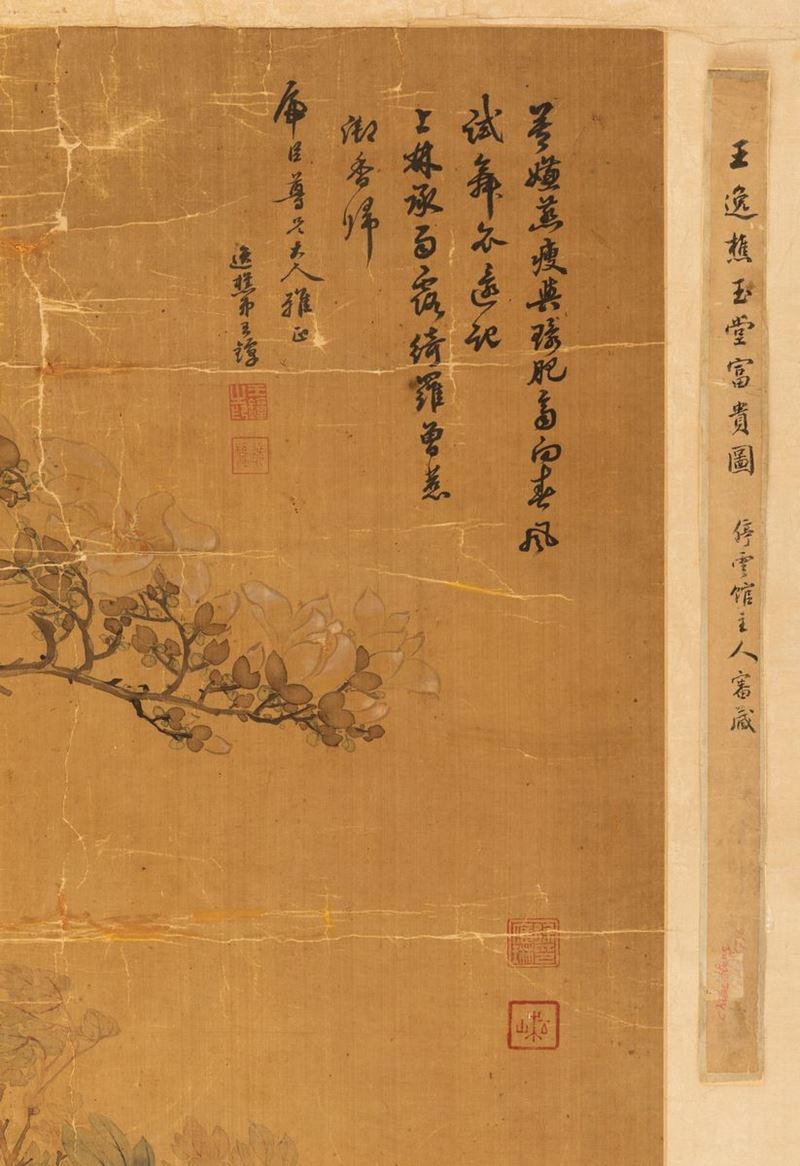 王逸樵玉堂富貴圖 停雲館主人審藏
莫嫌燕瘦與環肥齊向春風
試舞衣還記
上林承雨露綺羅曾惹
御香歸
虎臣尊兄大人雅正
逸樵弟王錞